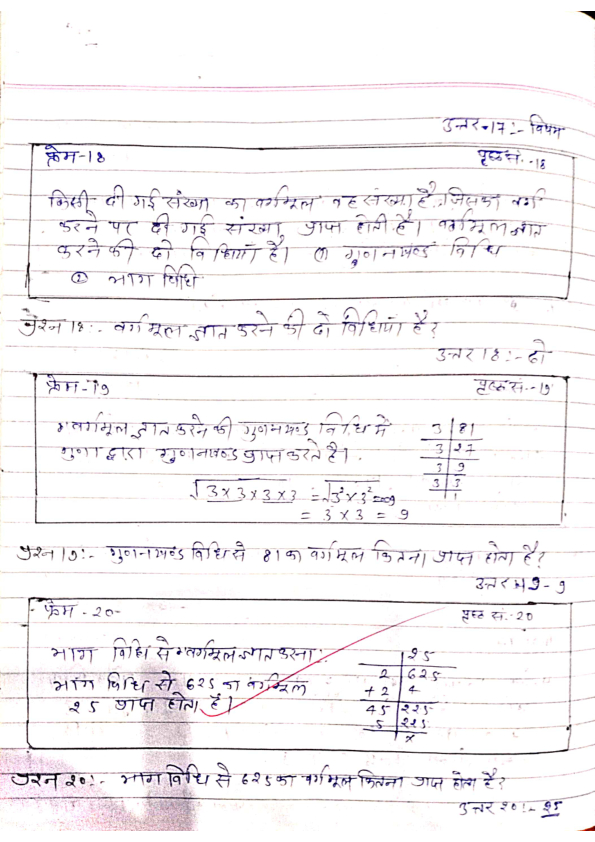 उत्तर-17:- विषम
फ्रेम-18 पृष्ठ सं.-18
किसी दी गई संख्या का वर्गमूल वह संख्या है, जिसका वर्ग
करने पर दी गई संख्या प्राप्त होती है। वर्गमूल ज्ञात
करने की दो विधियां है। ① गुणनखण्ड विधि
② भाग विधि
प्रश्न 18:- वर्गमूल ज्ञात करने की दो विधियां है?
उत्तर 18:- दो
फ्रेम-19 पृष्ठ सं.-19
वर्गमूल ज्ञात करने की गुणनखण्ड विधि में
गुणा द्वारा गुणनखण्ड प्राप्त करते है।
3 | 81
3 | 27
3 | 9
3 | 3
1
√3×3×3×3 = √3²×3² = 9
= 3 × 3 = 9
प्रश्न 19:- गुणनखण्ड विधि से 81 का वर्गमूल कितना प्राप्त होता है?
उत्तर 19-9
फ्रेम-20- पृष्ठ सं.-20
भाग विधि से वर्गमूल ज्ञात करना:
भाग विधि से 625 का वर्गमूल
25 प्राप्त होता है।
25
2 | 625
+2 | 4
45 | 225
5 | 225
x
प्रश्न 20:- भाग विधि से 625 का वर्गमूल कितना प्राप्त होता है?
उत्तर 20:- 25